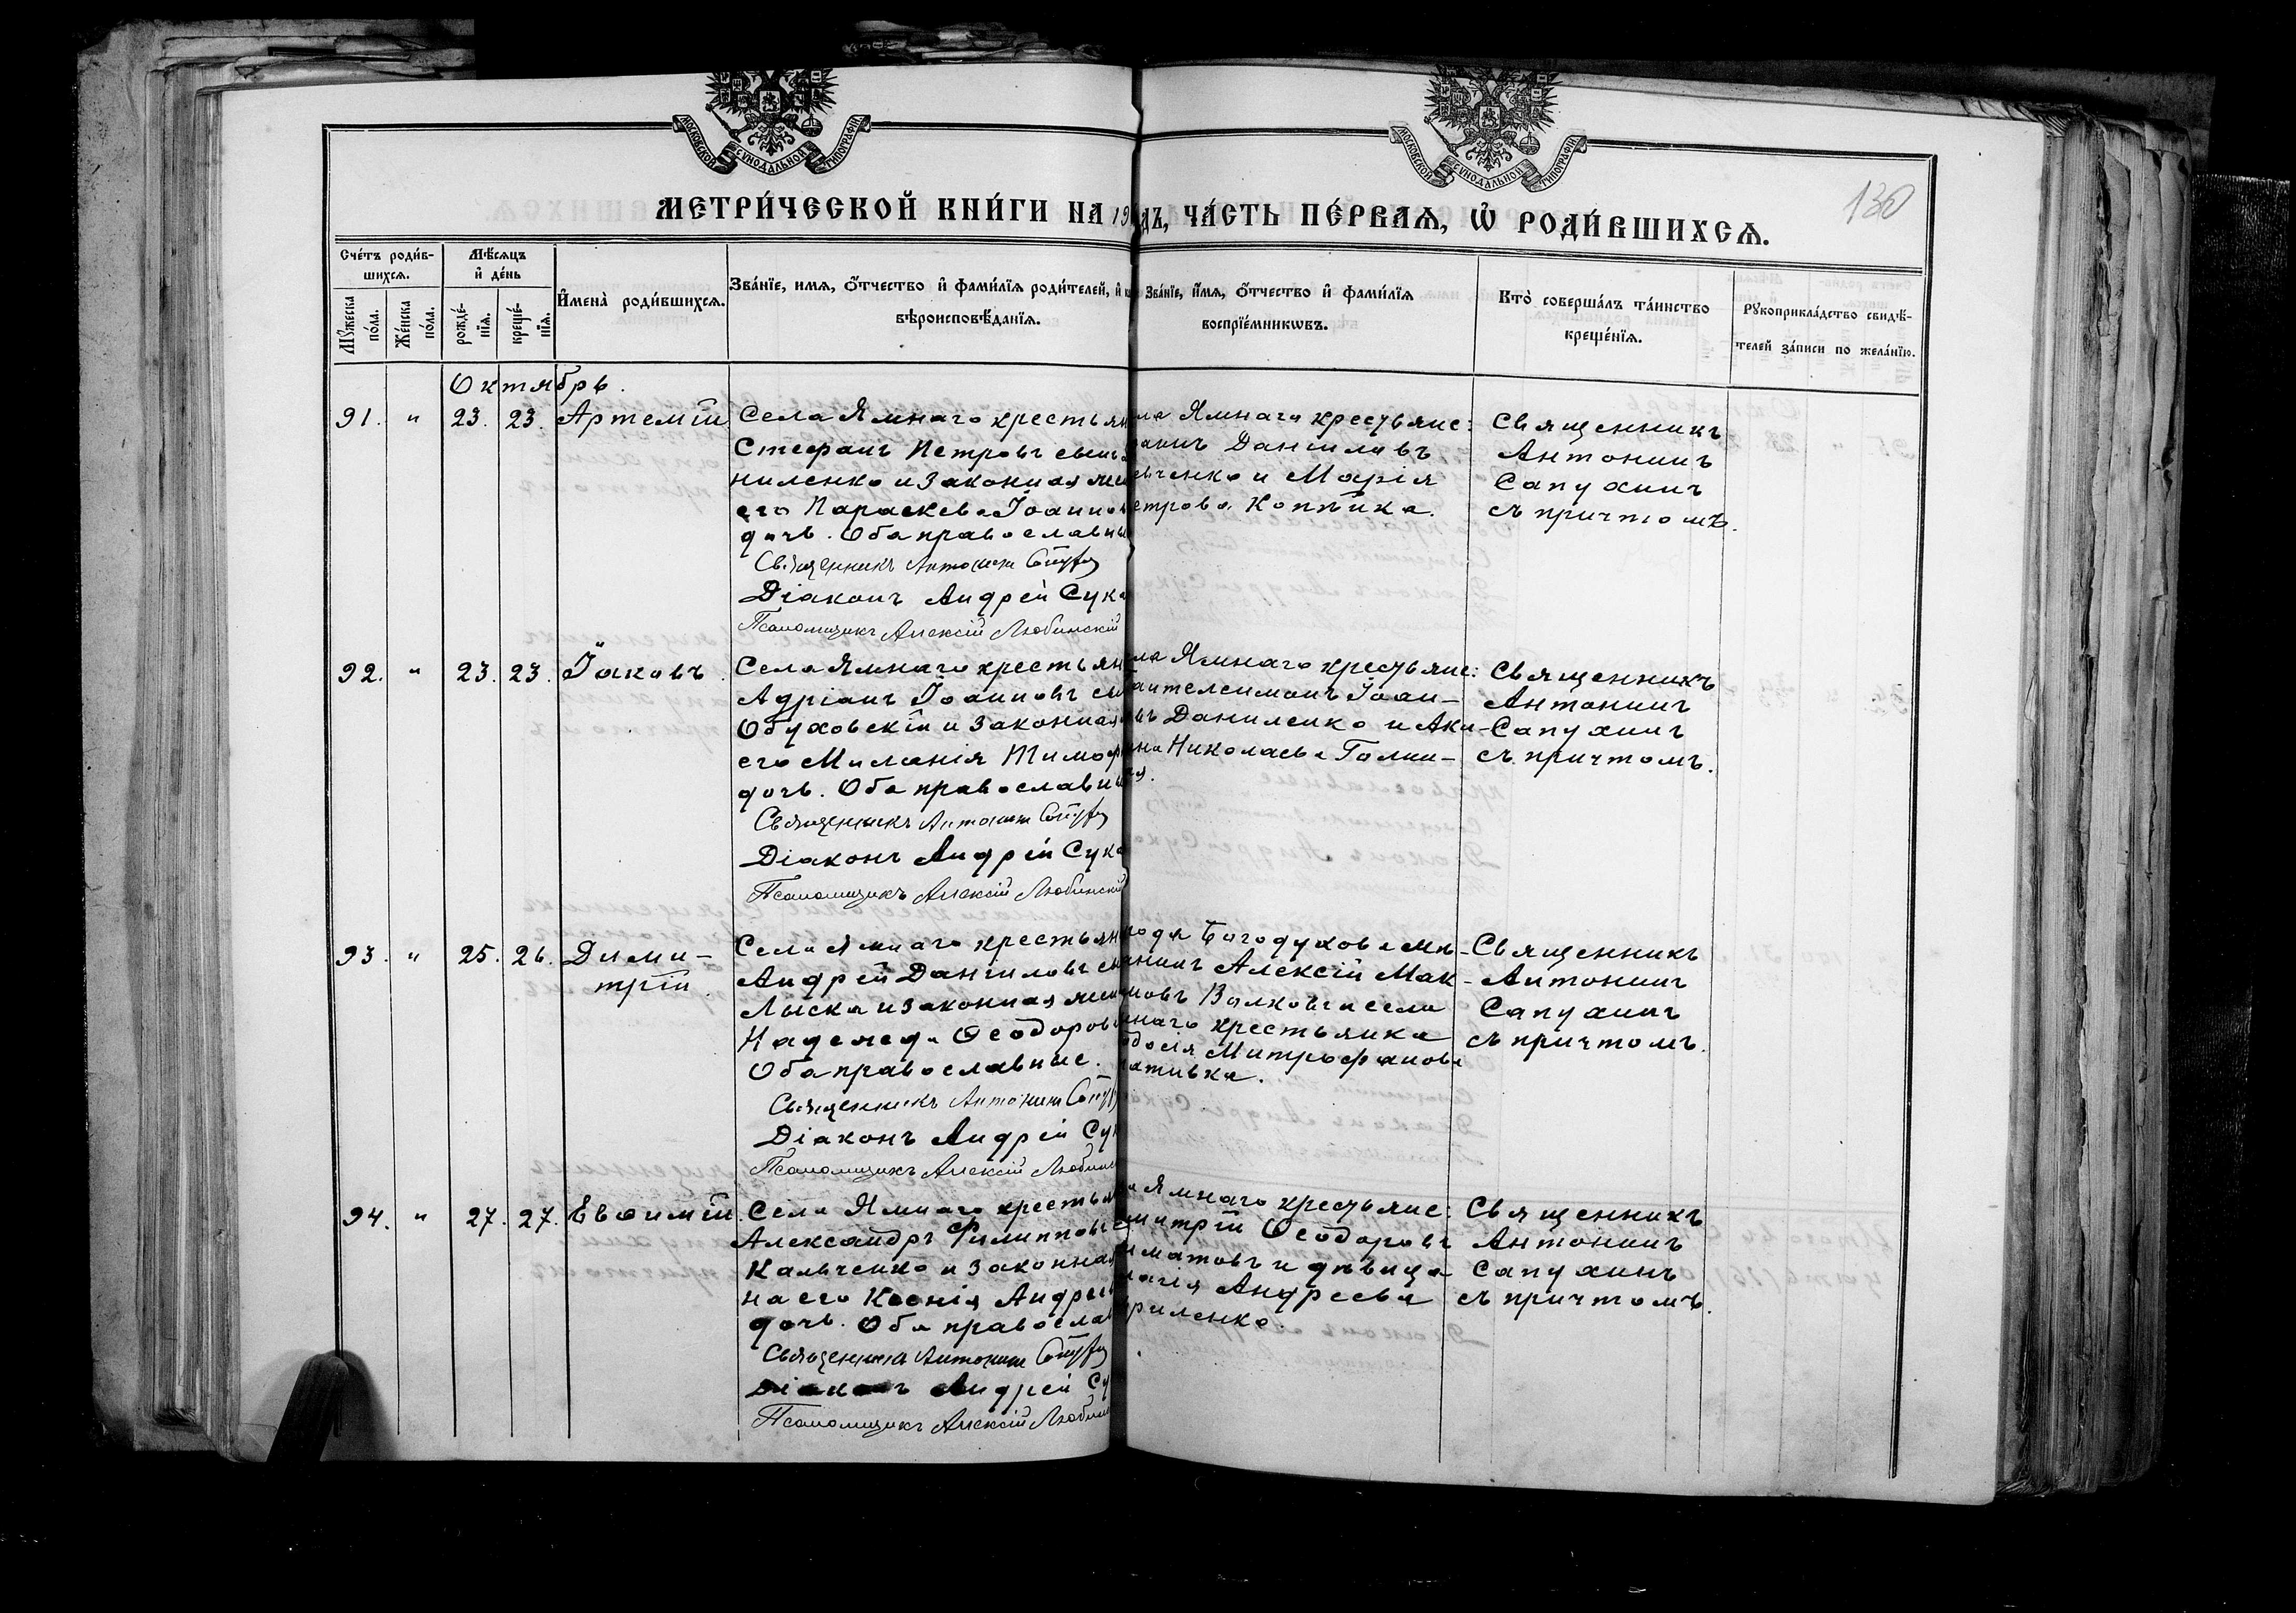 МОСКОВСКОЙ СѴНОДАЛЬНОЙ ТИПОГРАФІИ
МОСКОВСКОЙ СѴНОДАЛЬНОЙ ТИПОГРАФІИ
130
МЕТРИ́ЧЕСКОЙ КНИ́ГИ НА 19 ДЪ, ЧА́СТЬ ПЕ́РВАѦ, Ѡ҆ РОДИ́ВШИХСѦ.
Сче́тъ роди́в-
шихсѧ.
Мꙋжеска по́ла.
Же́нска по́ла.
Мѣ́сѧцъ
и҆ де́нь
рожде́-
нїѧ.
креще́-
нїѧ.
И҆мена̀ роди́вшихсѧ.
Зва́нїе, имѧ, ѻ҆́тчество и҆ фами́лїѧ роди́телей, и҆
вѣроисповѣ́данїѧ.
Зва́нїе, и҆́мѧ, ѻ҆́тчество и҆ фами́лїѧ
воспрїе́мникѡвъ.
Кто̀ соверша́лъ та́инство
креще́нїѧ.
Рꙋкоприкла́дство свидѣ́-
телей за́писи по жела́нїю.
Октябрь.
91. " 23. 23. Артемій
Села Ямнаго крестьян
Стефанъ Петровъ
ниленко и законная же
его Параскева Іоаннов
дочь. Оба православны
Священникъ Антонинъ
Діаконъ Андрей Сук
Псаломщикъ Алексій Любинскій
ла Ямнаго крестьяне:
Даніиловъ
вченко и Марія
етрова Коптика.
Священникъ
Антонинъ
Сапухинъ
съ причтомъ.
92. " 23. 23. Іаковъ.
Села Ямнаго крестьян
Адріанъ Іоанновъ
Обуховскій и законная
его Миланія Тимоф
дочь. Оба православны
Священникъ Антонинъ
Діаконъ Андрей Сук
Псаломщикъ Алексій Любинскій
ла Ямнаго крестьяне:
антелеимонъ Іоан-
въ Даниленко и Аки-
на Николаева Галки-
Священникъ
Антонинъ
Сапухинъ
съ причтомъ.
93. " 25. 26. Дими-
трій.
Села Ямнаго крестьян
Андрей Даніиловъ
Лыска и законная жен
Надежда Ѳеодоров
Оба православные.
Священникъ Антонинъ
Діаконъ Андрей Сук
Псаломщикъ Алексій Любин
рода Богодухова мѣ-
анинъ Алексій Мак-
мовъ Волковъ и села
мнаго крестьянка
одосія Митрофанова
Священникъ
Антонинъ
Сапухинъ
съ причтомъ.
94. " 27. 27. Евѳимій.
Села Ямнаго крестья
Александръ Филиппов
Кальченко и законная
на его Ксенія Андрее
дочь. Оба правосла
Священникъ Антонинъ
Діаконъ Андрей Су
Псаломщикъ Алексій Любин
а Ямнаго крестьяне:
митрій Ѳеодоровъ
матовъ и дѣвица
Андреева
риленко.
Священникъ
Антонинъ
Сапухинъ
съ причтомъ.